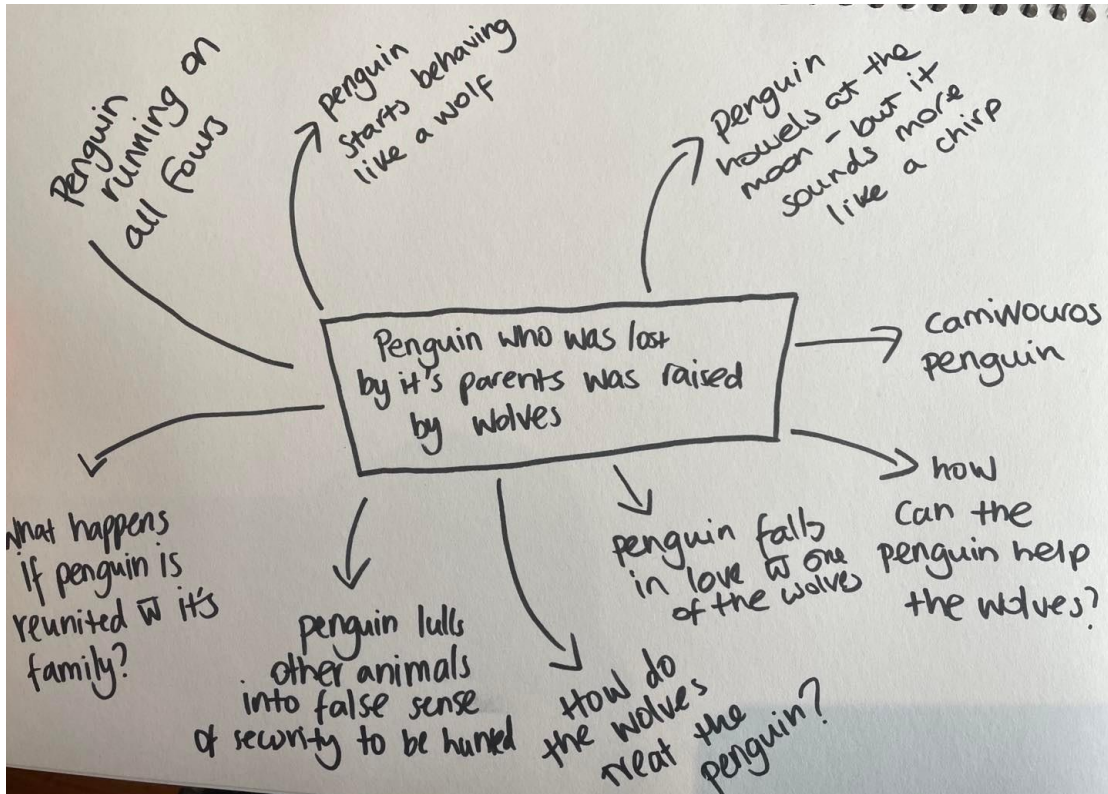 Penguin
running on
all fours
penguin
starts behaving
like a wolf
penguin
howels at the
moon - but it
sounds more
like a chirp
Penguin who was lost
by it's parents was raised
by wolves
carniwouros
penguin
how
can the
penguin help
the wolves?
penguin falls
in love w̅ one
of the wolves
How do
the wolves
treat the
penguin?
penguin lulls
other animals
into false sense
of security to be hunted
What happens
if penguin is
reunited w̅ it's
family?